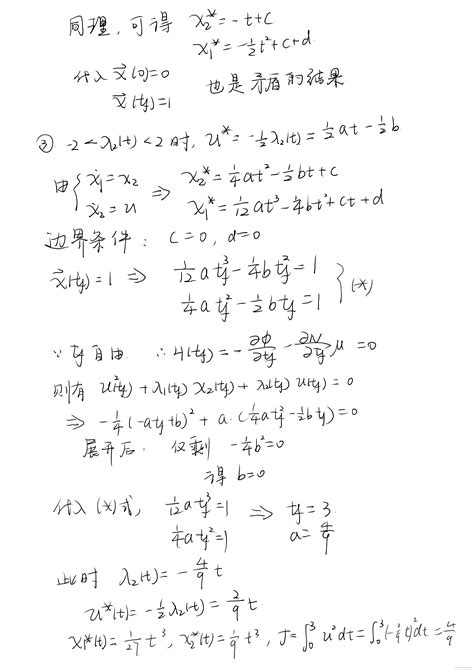 同理，可得 x₂* = -t+c
x₁* = -½t²+c+d
代入 x⃗(0)=0
x⃗(tf)=1 也是矛盾的结果
③ -2<λ₂(t)<2时，u* = -½λ₂(t) = ½at-½b
由{ẋ₁=x₂ ẋ₂=u ⇒ x₂* = ¼at²-½bt+c
x₁* = 1/12 at³-¼bt²+ct+d
边界条件： c=0, d=0
x⃗(tf)=1 ⇒ 1/12 a tf³-¼b tf²=1
¼a tf²-½b tf=1 } (*)
∵ tf 自由 ∴ H(tf) = -∂Φ/∂tf - ∂N/∂tf μ = 0
则有 u²(tf)+λ₁(tf)x₂(tf)+λ₂(tf)u(tf)=0
⇒ -¼(-atf+b)²+a·(¼atf²-½btf)=0
展开后， 仅剩 -¼b²=0
得 b=0
代入(*)式， 1/12 a tf³=1 ⇒ tf=3
¼a tf²=1 a=4/9
此时 λ₂(t) = -4/9 t
u*(t) = -½λ₂(t) = 2/9 t
x₁*(t) = 1/27 t³, x₂*(t) = 1/9 t³, J=∫₀³u²dt=∫₀³(-2/9 t)²dt=4/9